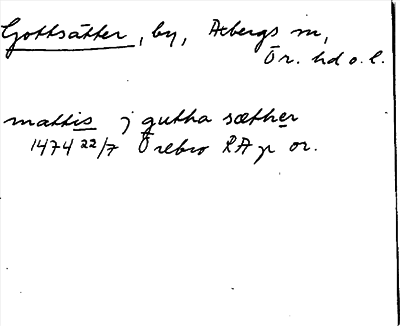 Gottsätter, by, Ætbergs sn,
Ör. hd o. l.
mattis j gutha sæther
1474 22/7 Örebro RA p or.